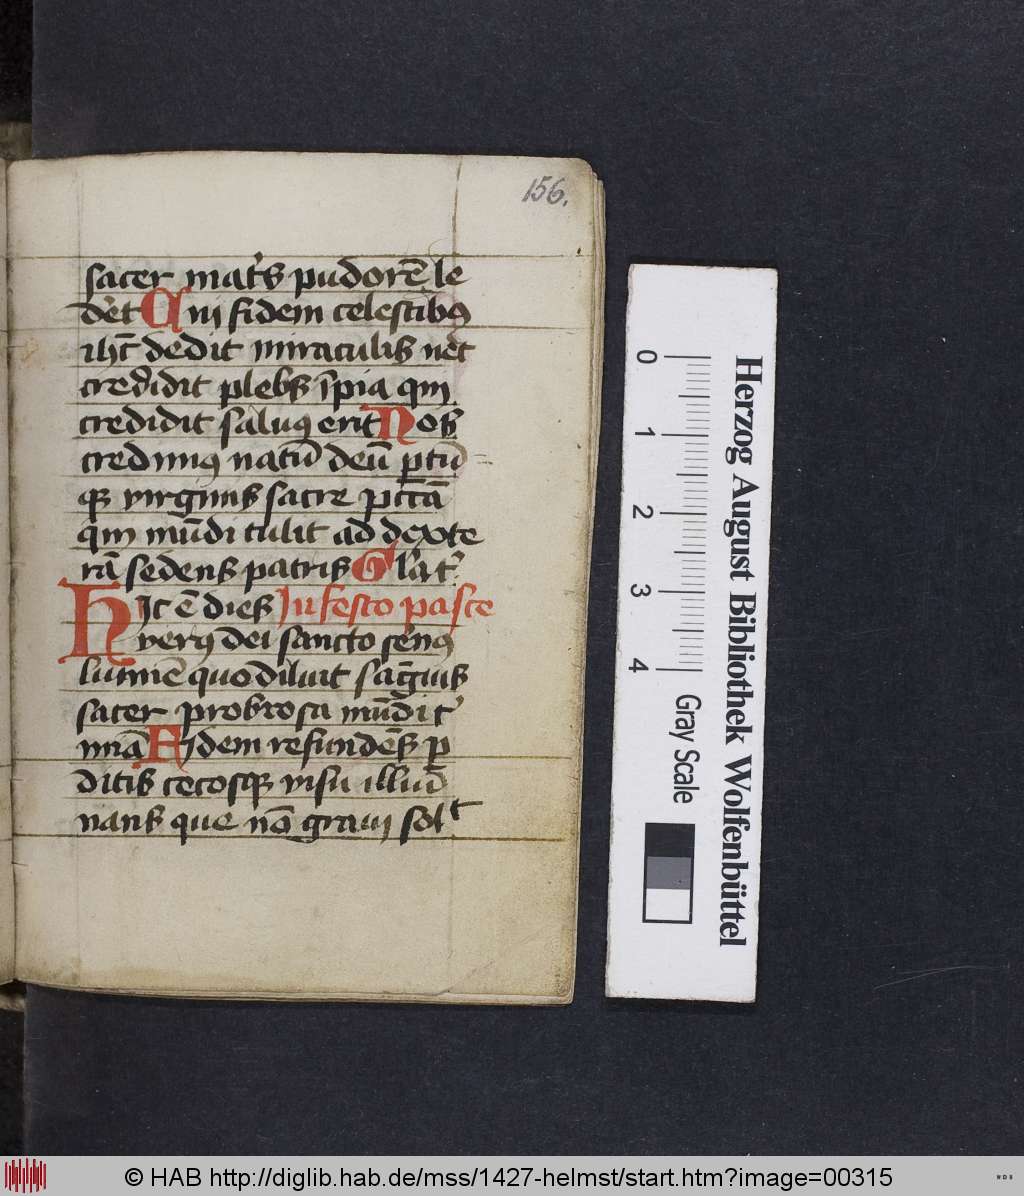 156.
sacer mat's pudorē le
det Qui fidem celestibꝰ
ihc̄ dedit miraculis nec
cred'idit plebs īpia qui
credidit saluꝰ erit Nos
credimꝰ natū deū ꝑtū
qꝫ virginis sacre
qui mūdi tulit ad dexte
rā sedens patris Gl'a t'
Hic ē dies In festo pasce
verꝰ dei sancto s'enꝰ
lumīe quo diluit sāguis
sacer probrosa mūdi c'
mīa Fidem refundēs ꝑ
ditis cecosqꝫ visu illūi
nans que nō graui sol t
Herzog August Bibliothek Wolfenbüttel
0 1 2 3 4
Gray Scale
© HAB http://diglib.hab.de/mss/1427-helmst/start.htm?image=00315